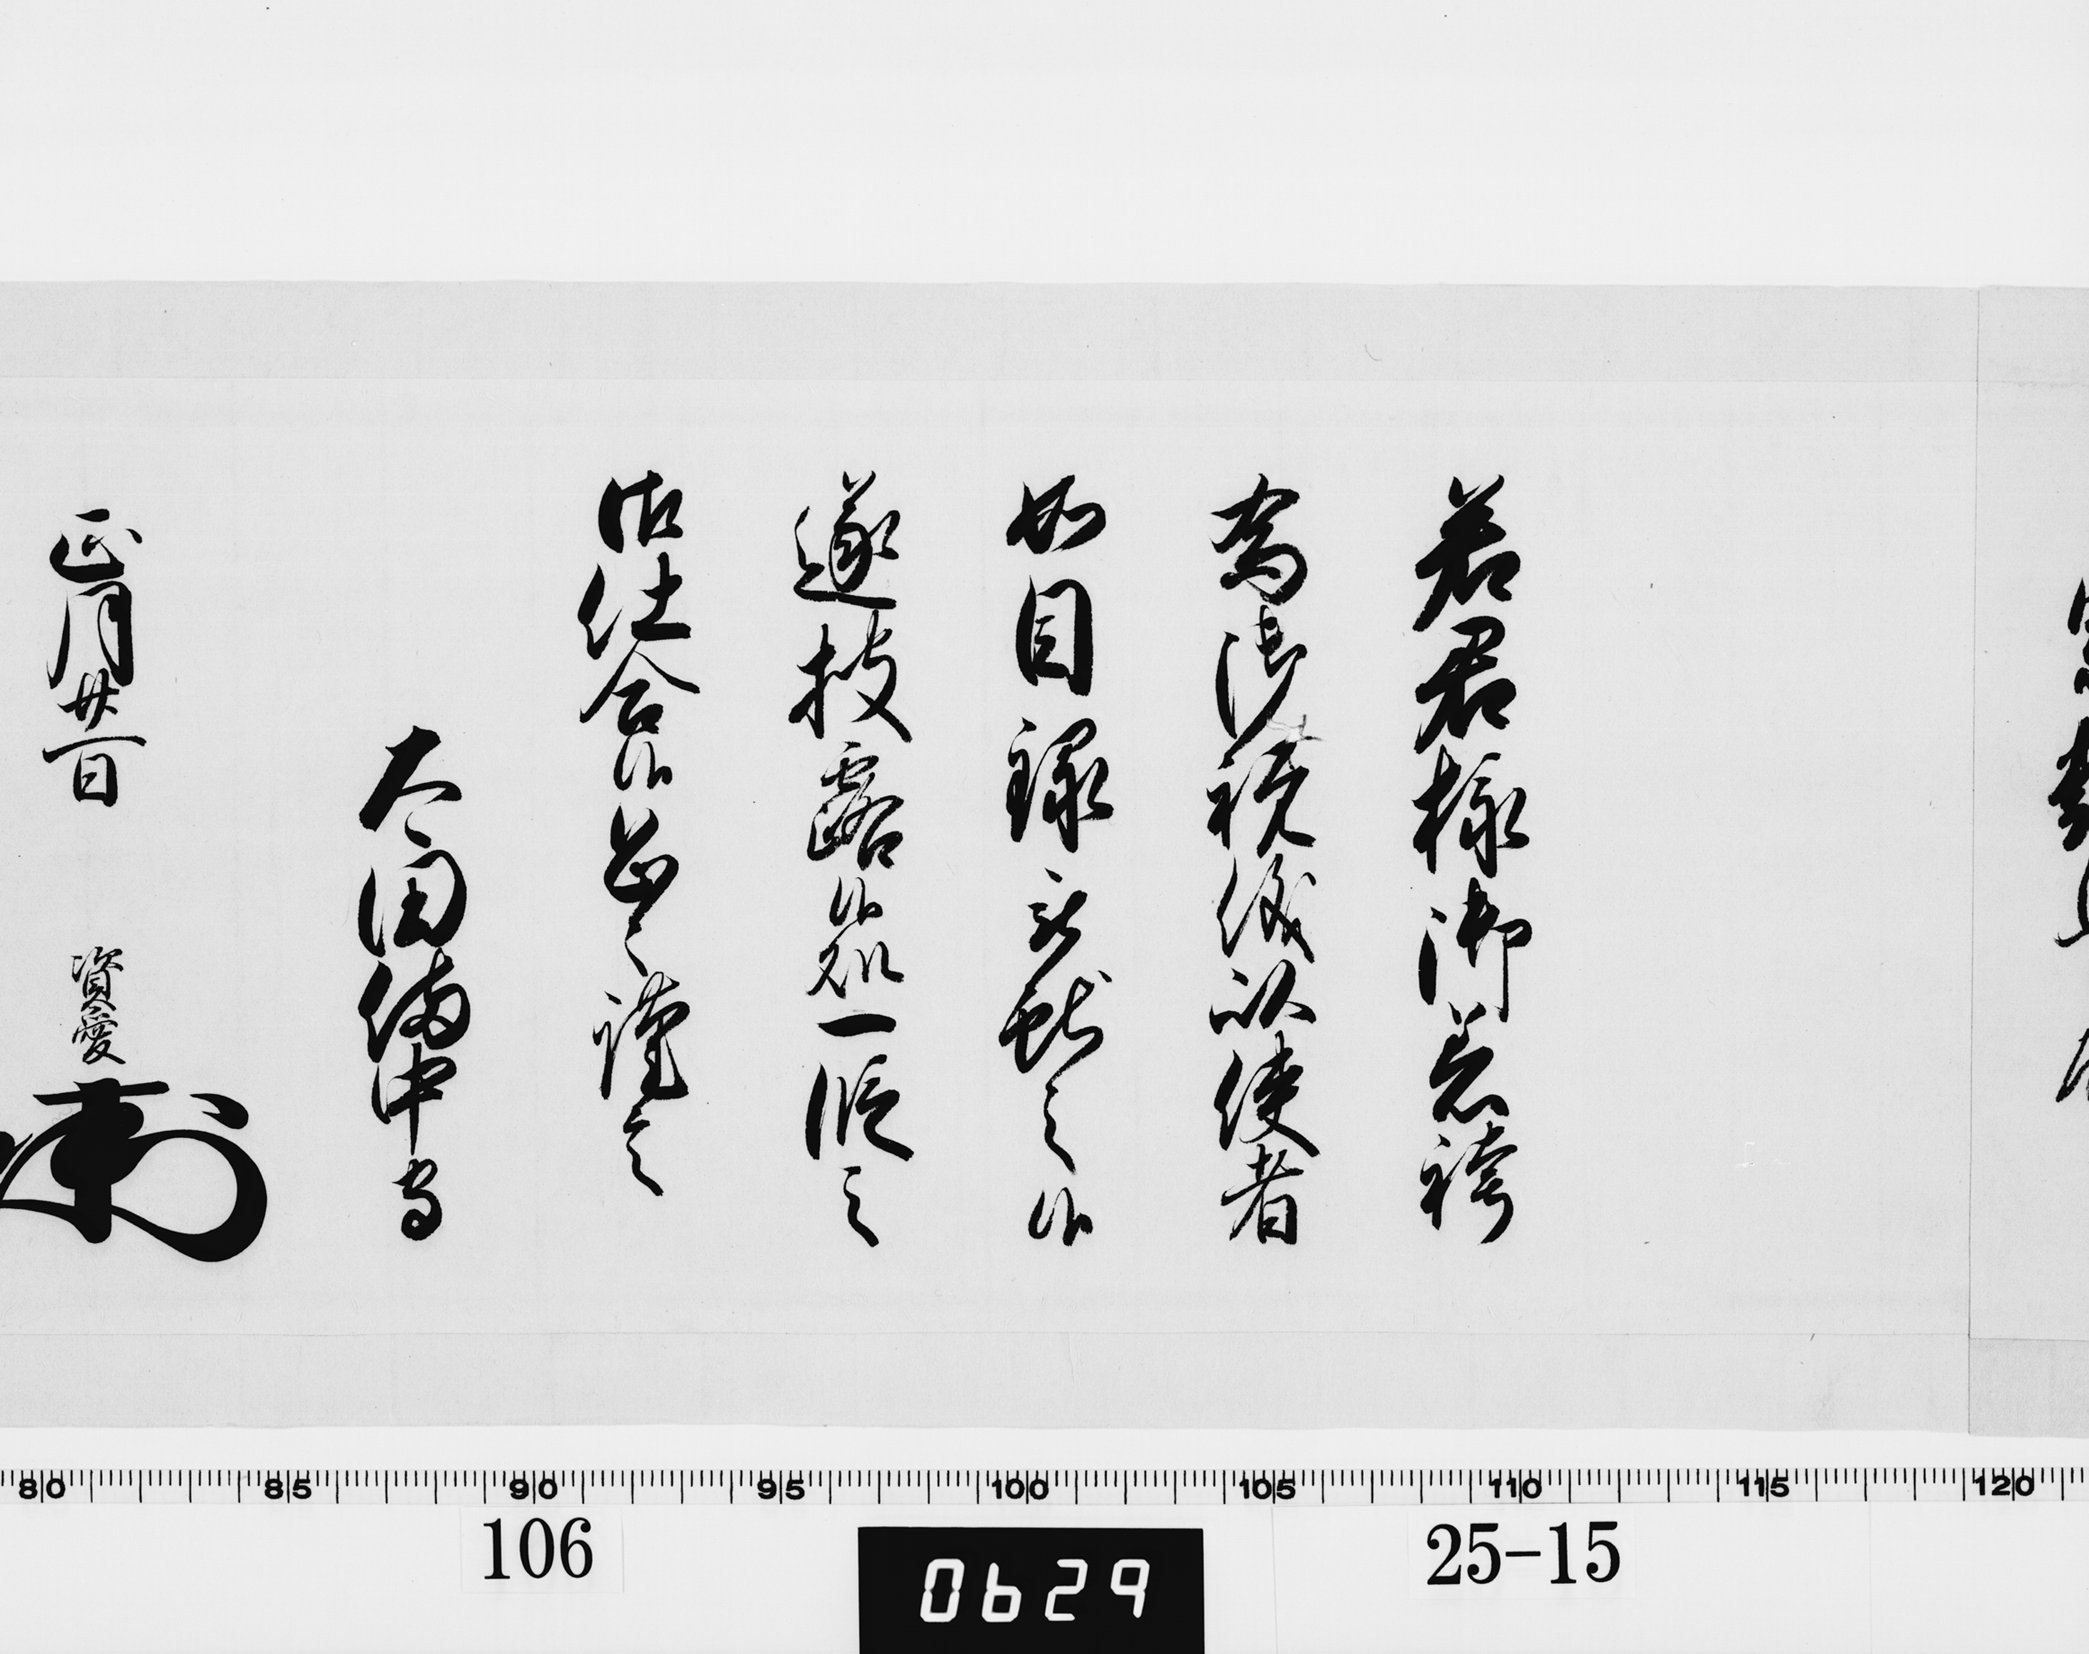 若君様御着袴
為御祝儀以使者
如目録被献之候
遂披露候処一段之
御仕合候恐々謹言
太田備中守
正月廿一日
資愛
80 85 90 95 100 105 110 115 120
106
0629
25-15